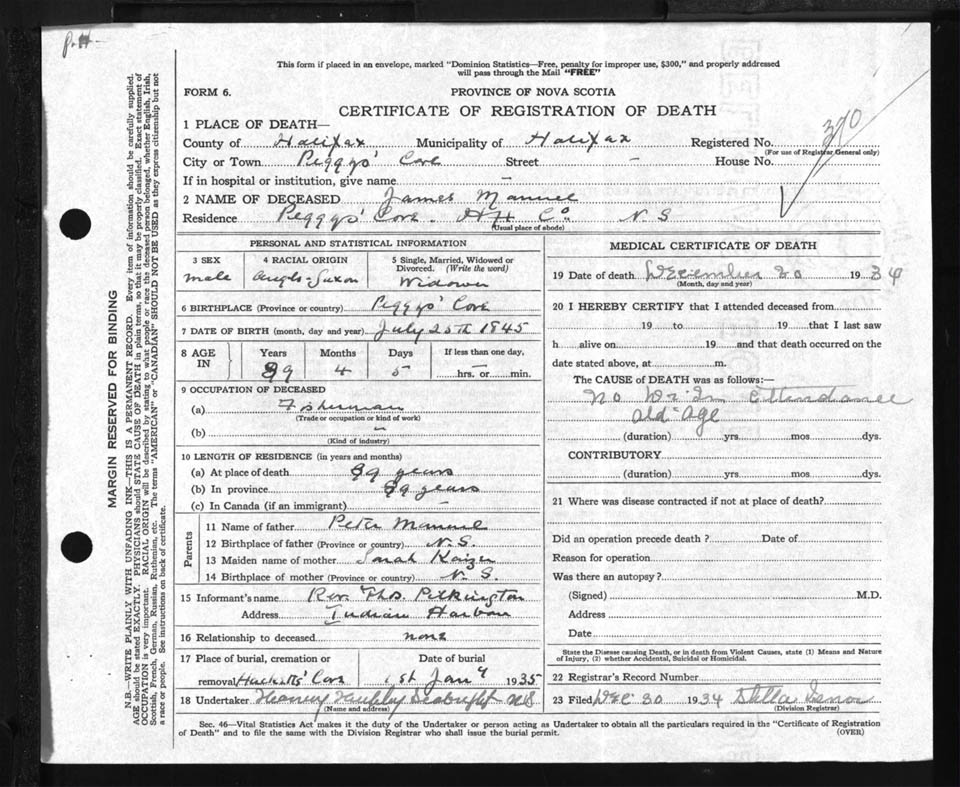 P.H.
This form if placed in an envelope, marked "Dominion Statistics—Free, penalty for improper use, $300," and properly addressed
will pass through the Mail "FREE"
FORM 6.
PROVINCE OF NOVA SCOTIA
CERTIFICATE OF REGISTRATION OF DEATH
370
1 PLACE OF DEATH—
County of Halifax Municipality of Halifax Registered No.
(For use of Registrar General only)
City or Town Peggys' Cove Street — House No.
If in hospital or institution, give name —
2 NAME OF DECEASED James Manuel
Residence Peggys' Cove. Hfx Co N S
(Usual place of abode)
PERSONAL AND STATISTICAL INFORMATION
3 SEX
male
4 RACIAL ORIGIN
Anglo-Saxon
5 Single, Married, Widowed or
Divorced. (Write the word)
Widower
6 BIRTHPLACE (Province or country) Peggys' Cove
7 DATE OF BIRTH (month, day and year) July 25th 1845
8 AGE
IN
Years
89
Months
4
Days
5
If less than one day,
hrs. or min.
9 OCCUPATION OF DECEASED
(a) Fisherman
(Trade or occupation or kind of work)
(b) —
(Kind of industry)
10 LENGTH OF RESIDENCE (in years and months)
(a) At place of death 89 years
(b) In province 89 years
(c) In Canada (if an immigrant)
Parents
11 Name of father Peter Manuel
12 Birthplace of father (Province or country) N.S.
13 Maiden name of mother Sarah Kaizer
14 Birthplace of mother (Province or country) N. S.
15 Informant's name Rev. Thos. Pilkington
Address Indian Harbour
16 Relationship to deceased none
17 Place of burial, cremation or
removal Hacketts' Cove
Date of burial
1st Jan'y 1935
18 Undertaker Seabright N S
(Name and address)
MEDICAL CERTIFICATE OF DEATH
19 Date of death December 30 1934
(Month, day and year)
20 I HEREBY CERTIFY that I attended deceased from
19 to 19 that I last saw
h alive on 19 and that death occurred on the
date stated above, at m.
The CAUSE OF DEATH was as follows:—
No Dr. In Attendance
old age
(duration) yrs. mos. dys.
CONTRIBUTORY
(duration) yrs. mos. dys.
21 Where was disease contracted if not at place of death?
Did an operation precede death ? Date of
Reason for operation
Was there an autopsy?
(Signed) M.D.
Address
Date
State the Disease causing Death, or in death from Violent Causes, state (1) Means and Nature
of Injury, (2) whether Accidental, Suicidal or Homicidal.
22 Registrar's Record Number
23 Filed Dec 30 1934 Stella
(Division Registrar)
Sec. 46—Vital Statistics Act makes it the duty of the Undertaker or person acting as Undertaker to obtain all the particulars required in the "Certificate of Registration
of Death" and to file the same with the Division Registrar who shall issue the burial permit.
(OVER)
MARGIN RESERVED FOR BINDING
N.B.—WRITE PLAINLY WITH UNFADING INK—THIS IS A PERMANENT RECORD. Every item of information should be carefully supplied.
AGE should be stated EXACTLY. PHYSICIANS should STATE CAUSE OF DEATH in plain terms, so that it may be properly classified. Exact statement of
OCCUPATION is very important. RACIAL ORIGIN will be described by stating to what people or race the deceased person belonged, whether English, Irish,
Scottish, French, German, Russian, Ruthenian, etc. The terms "AMERICAN" or "CANADIAN" SHOULD NOT BE USED as they express citizenship but not
a race or people. See instructions on back of certificate.